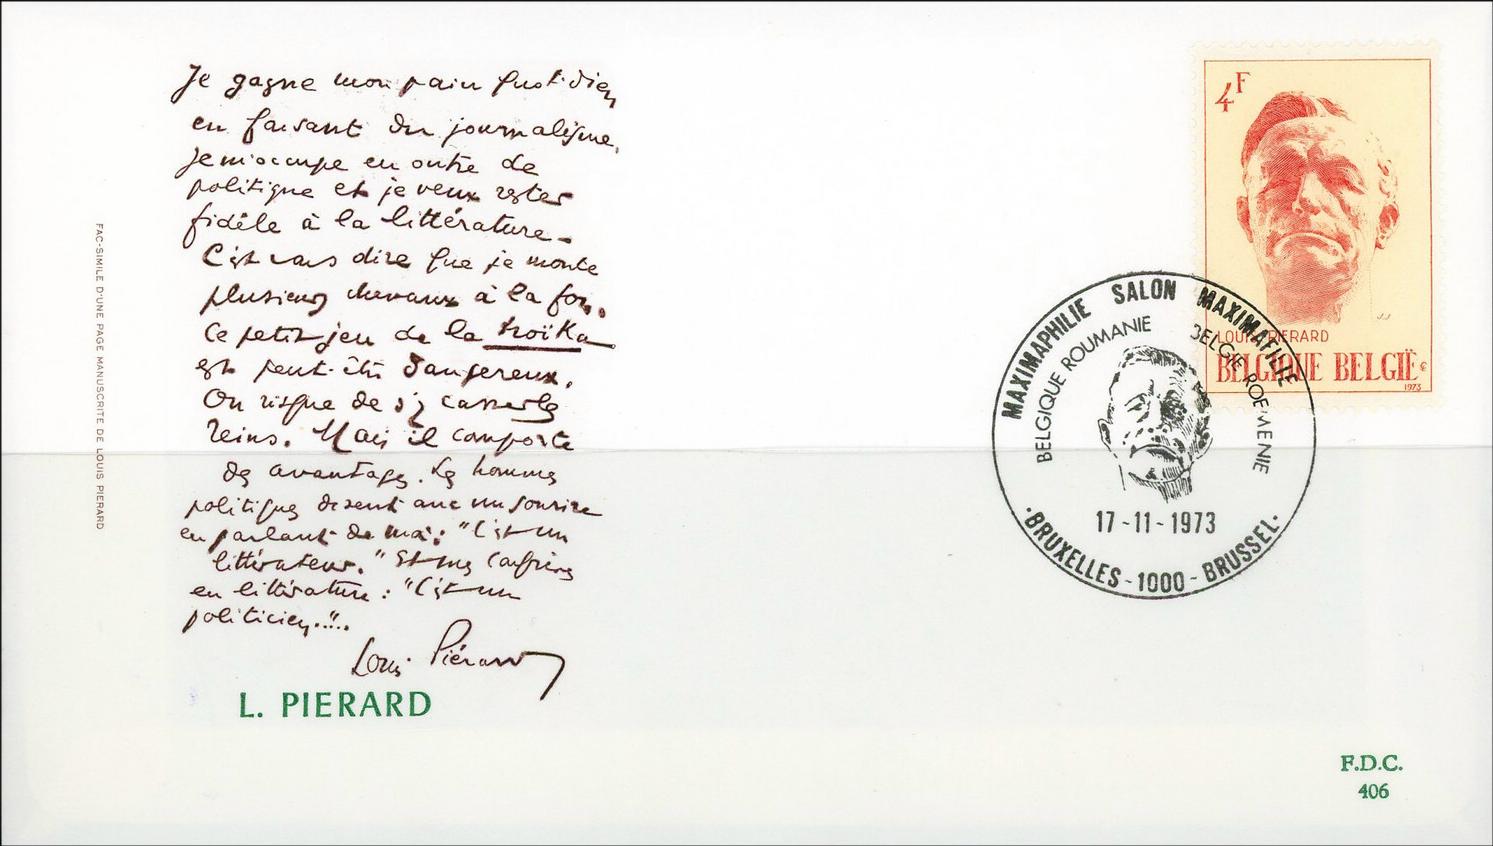 Je gagne mon pain quotidien
en faisant du journalisme.
Je m'occupe en outre de
politique et je veux rester
fidèle à la littérature_
C'est vous dire que je monte
plusieurs chevaux à la fois.
Ce petit jeu de la troïka
est peut-être dangereux.
On risque de s'y casser les
reins. Mais il comporte
des avantages. Les hommes
politiques disent avec un sourire
en parlant de moi : "C'est un
littérateur." Et mes confrères
en littérature : "C'est un
politicien..."..
Louis Piérard
L. PIERARD
FAC-SIMILE D'UNE PAGE MANUSCRITE DE LOUIS PIERARD
4F
JJ
LOUIS PIERARD
BELGIQUE BELGIË
1973
MAXIMAPHILIE SALON MAXIMAFILIE
BELGIQUE ROUMANIE BELGIE ROEMENIE
17-11-1973
·BRUXELLES-1000-BRUSSEL·
F.D.C.
406